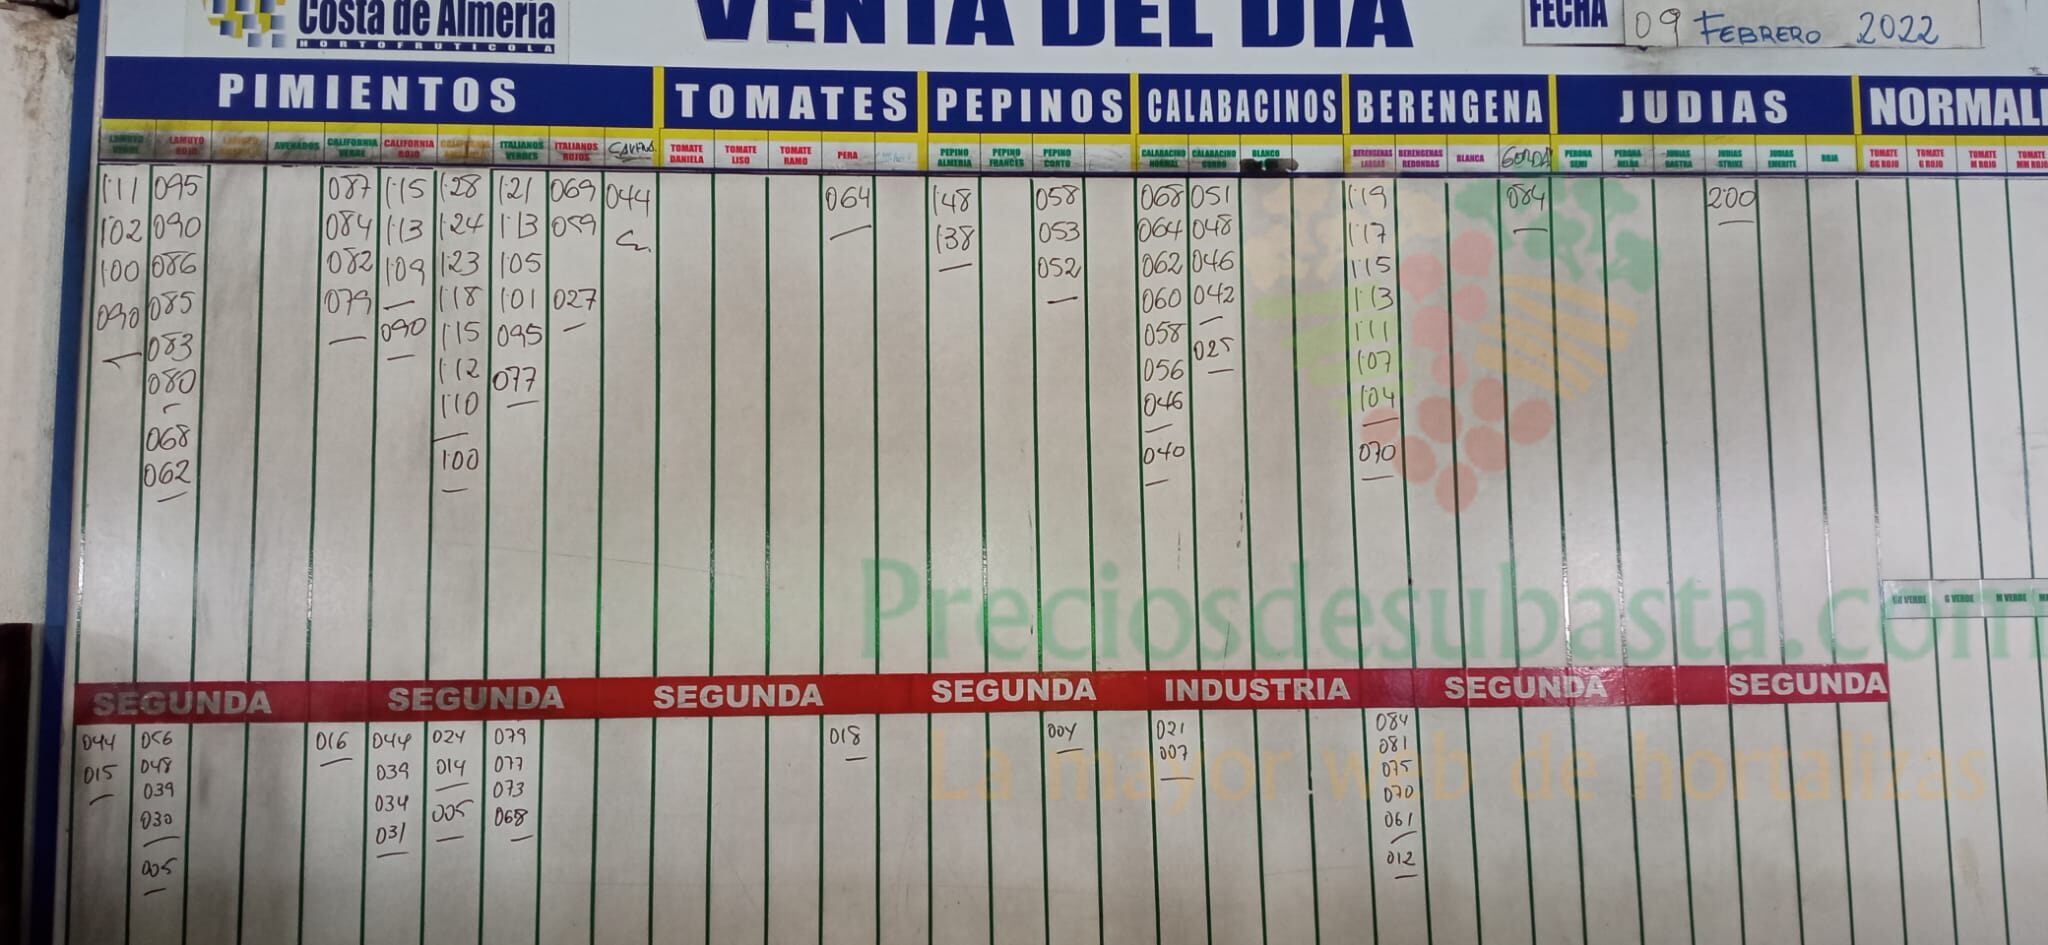 Costa de Almería
HORTOFRUTICOLA
VENTA DEL DIA
FECHA 09 FEBRERO 2022
PIMIENTOS TOMATES PEPINOS CALABACINOS BERENGENA JUDIAS NORMALI
LAMUYO VERDE LAMUYO ROJO LAMUYO ASURCADOS CALIFORNIA VERDE CALIFORNIA ROJO CALIFORNIA ITALIANOS VERDES ITALIANOS ROJOS TOMATE DANIELA TOMATE LISO TOMATE RAMO PERA PEPINO ALMERIA PEPINO FRANCES PEPINO CORTO CALABACINO NORMAL CALABACINO GORDO BLANCO BERENGENAS LARGAS BERENGENAS REDONDAS BLANCA GORDA PERONA SEMI PERONA HELDA JUDIAS RASTRA JUDIAS STRIKE JUDIAS EMERITE ROJA TOMATE GG ROJO TOMATE G ROJO TOMATE M ROJO TOMATE MM ROJO
1'11 095 087 1'15 1'28 1'21 069 044 064 1'48 058 068 051 1'19 084 200
1'02 090 084 1'13 1'24 1'13 059 1'38 053 064 048 1'17
1'00 086 082 1'09 1'23 1'05 052 062 046 1'15
090 085 079 1'18 1'01 027 060 042 1'13
083 090 1'15 095 058 025 1'11
080 1'12 077 056 1'07
1'10 046 1'04
068 1'00 040 070
062
GG VERDE G VERDE M VERDE
Preciosdesubasta.com
SEGUNDA SEGUNDA SEGUNDA SEGUNDA INDUSTRIA SEGUNDA SEGUNDA
044 056 016 044 024 079 018 004 021 084
015 048 039 014 077 007 081
039 034 005 073 075
030 031 068 070
005 061
012
La mayor web de hortalizas